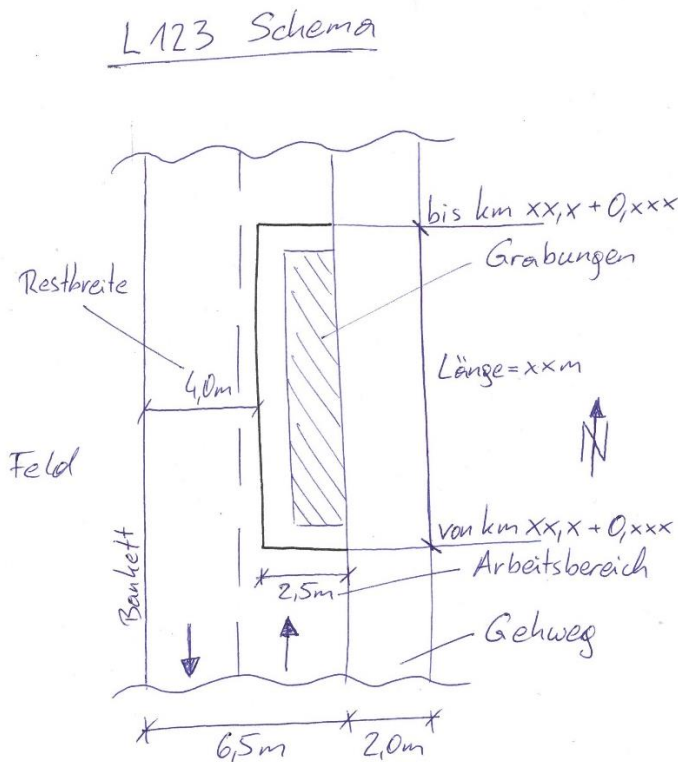 L 123 Schema
bis km xx,x + 0,xxx
Grabungen
Restbreite
4,0m
Länge = xx m
N
Feld
von km xx,x + 0,xxx
Arbeitsbereich
2,5m
Bankett
Gehweg
6,5m
2,0m